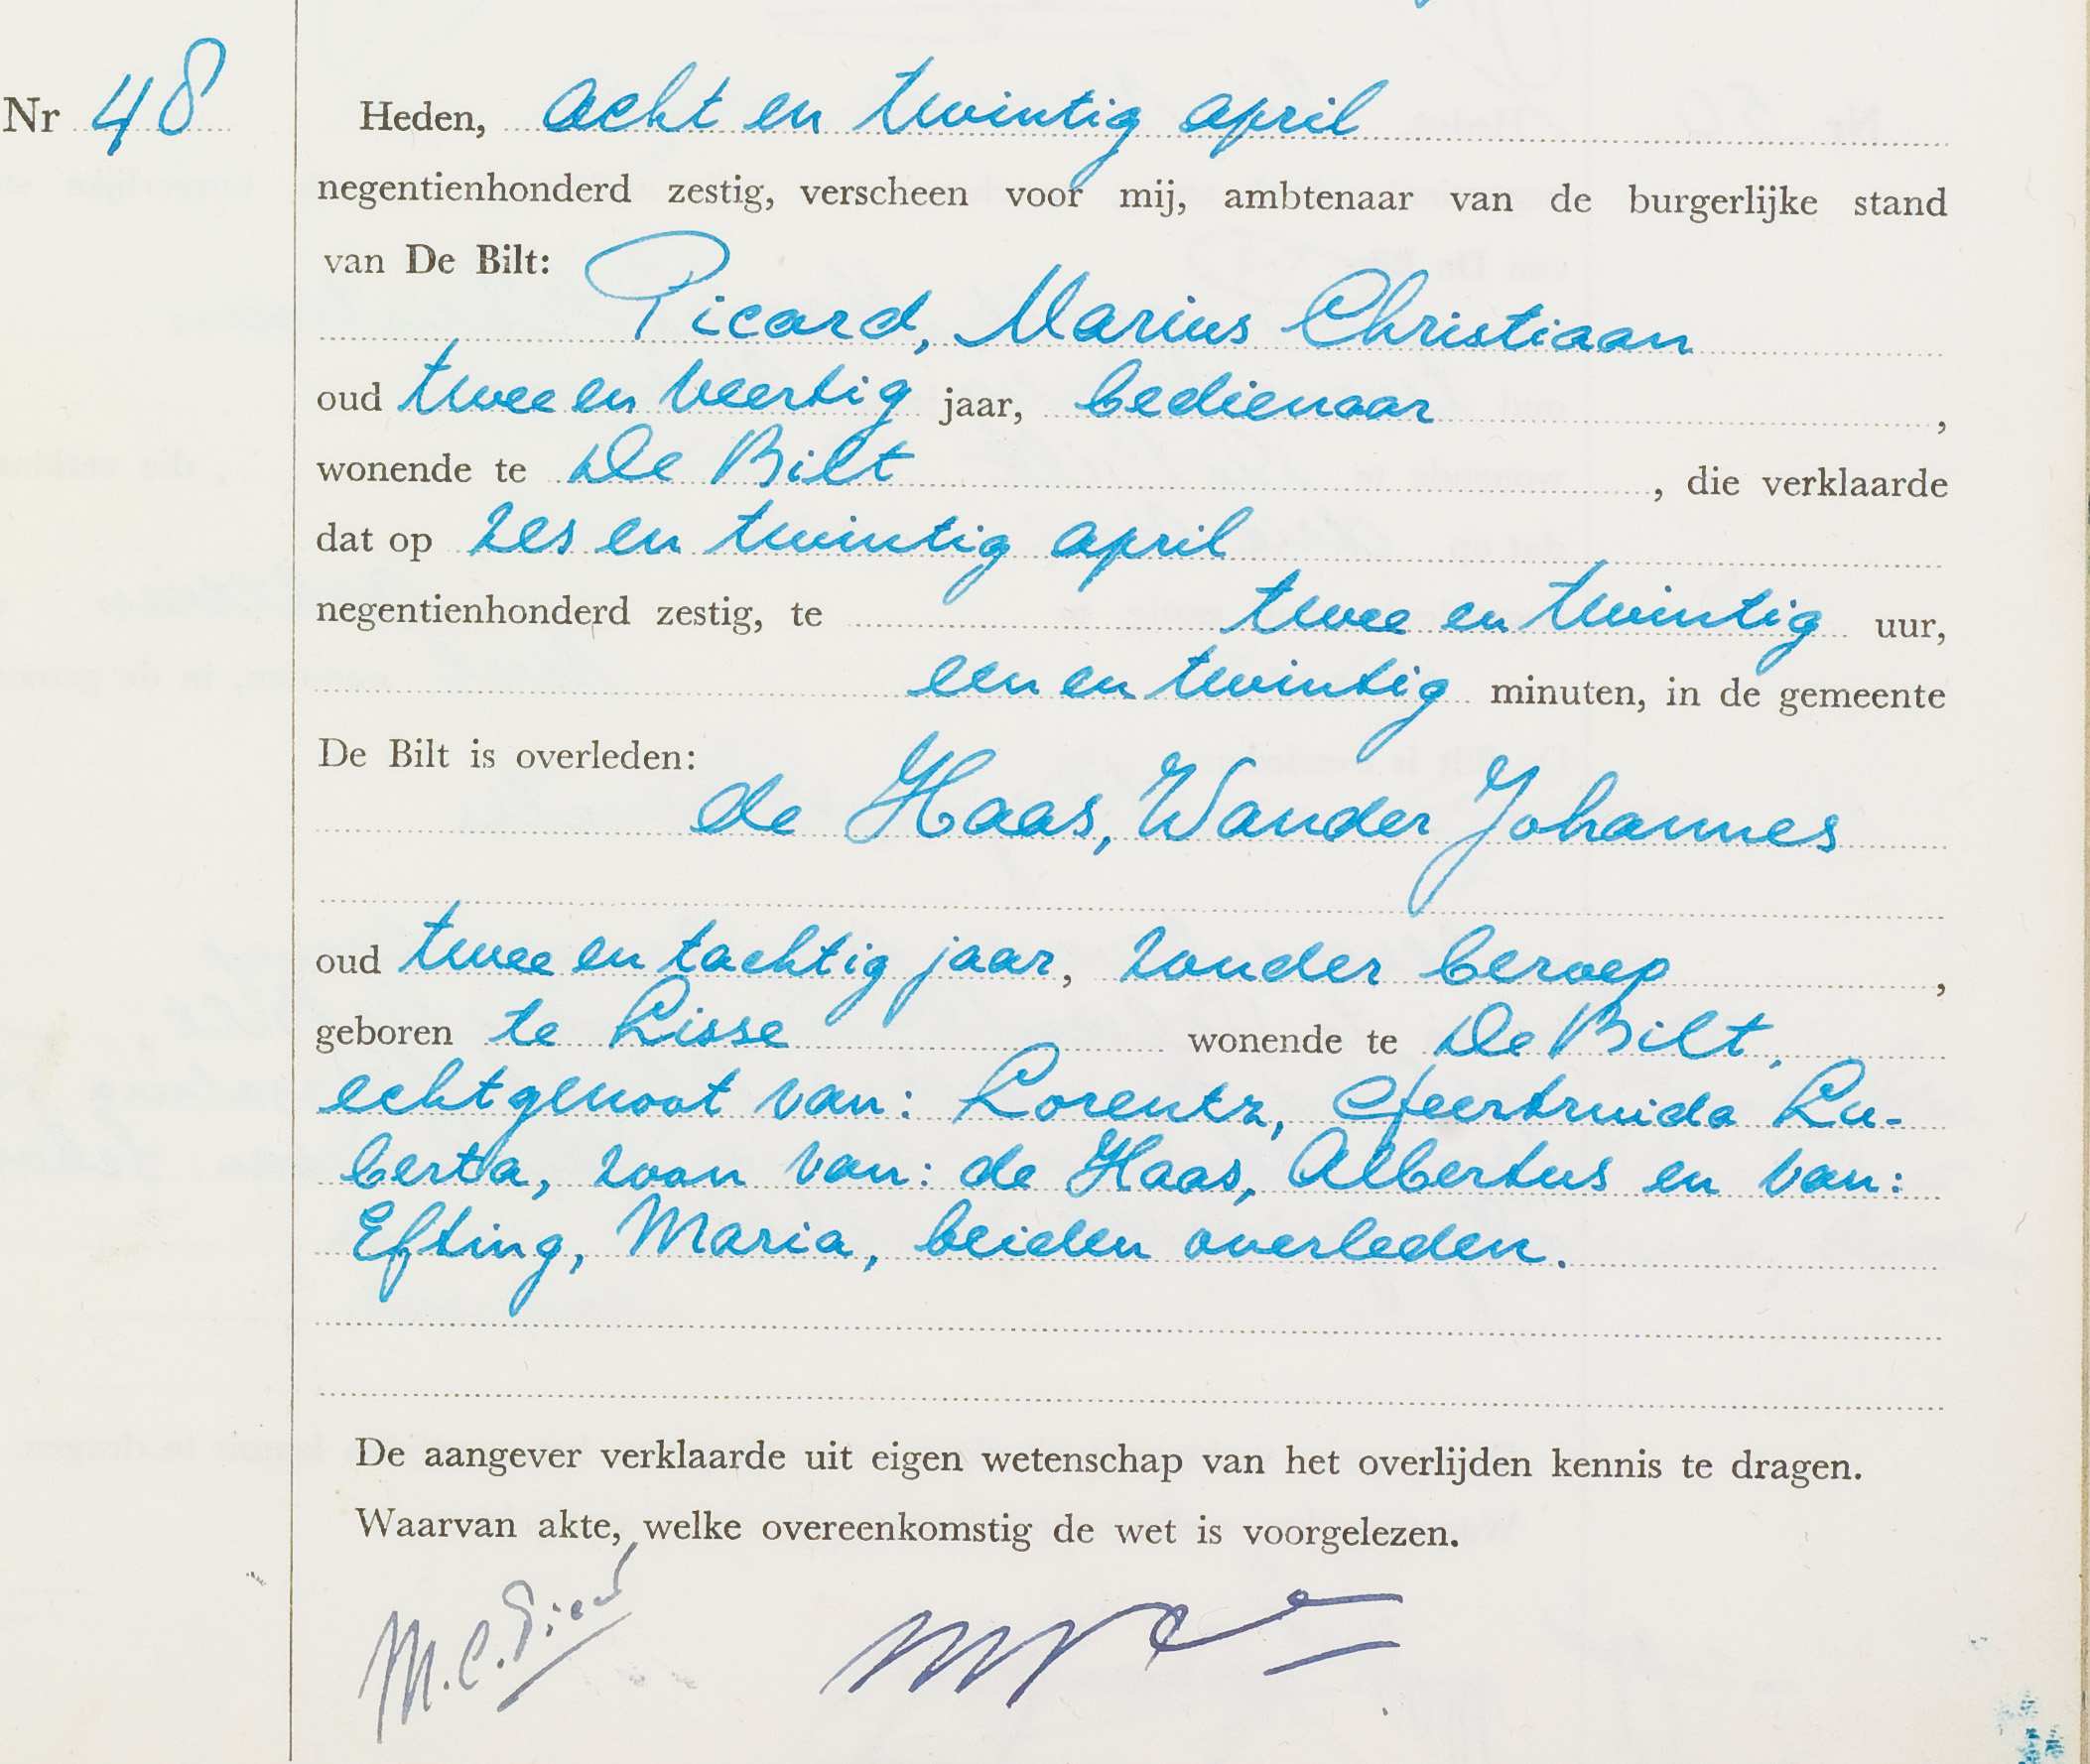 Nr 48
Heden, acht en twintig april
negentienhonderd zestig, verscheen voor mij, ambtenaar van de burgerlijke stand
van De Bilt:
Picard, Marius Christiaan
oud twee en veertig jaar, bedienaar,
wonende te De Bilt, die verklaarde
dat op zes en twintig april
negentienhonderd zestig, te twee en twintig uur,
een en twintig minuten, in de gemeente
De Bilt is overleden:
de Haas, Wander Johannes
oud twee en tachtig jaar, zonder beroep,
geboren te Lisse wonende te De Bilt,
echtgenoot van: Lorentz, Geertruida Lu-
berta, zoon van: de Haas, Albertus en van:
Efting, Maria, beiden overleden.
De aangever verklaarde uit eigen wetenschap van het overlijden kennis te dragen.
Waarvan akte, welke overeenkomstig de wet is voorgelezen.
M.C. Picard